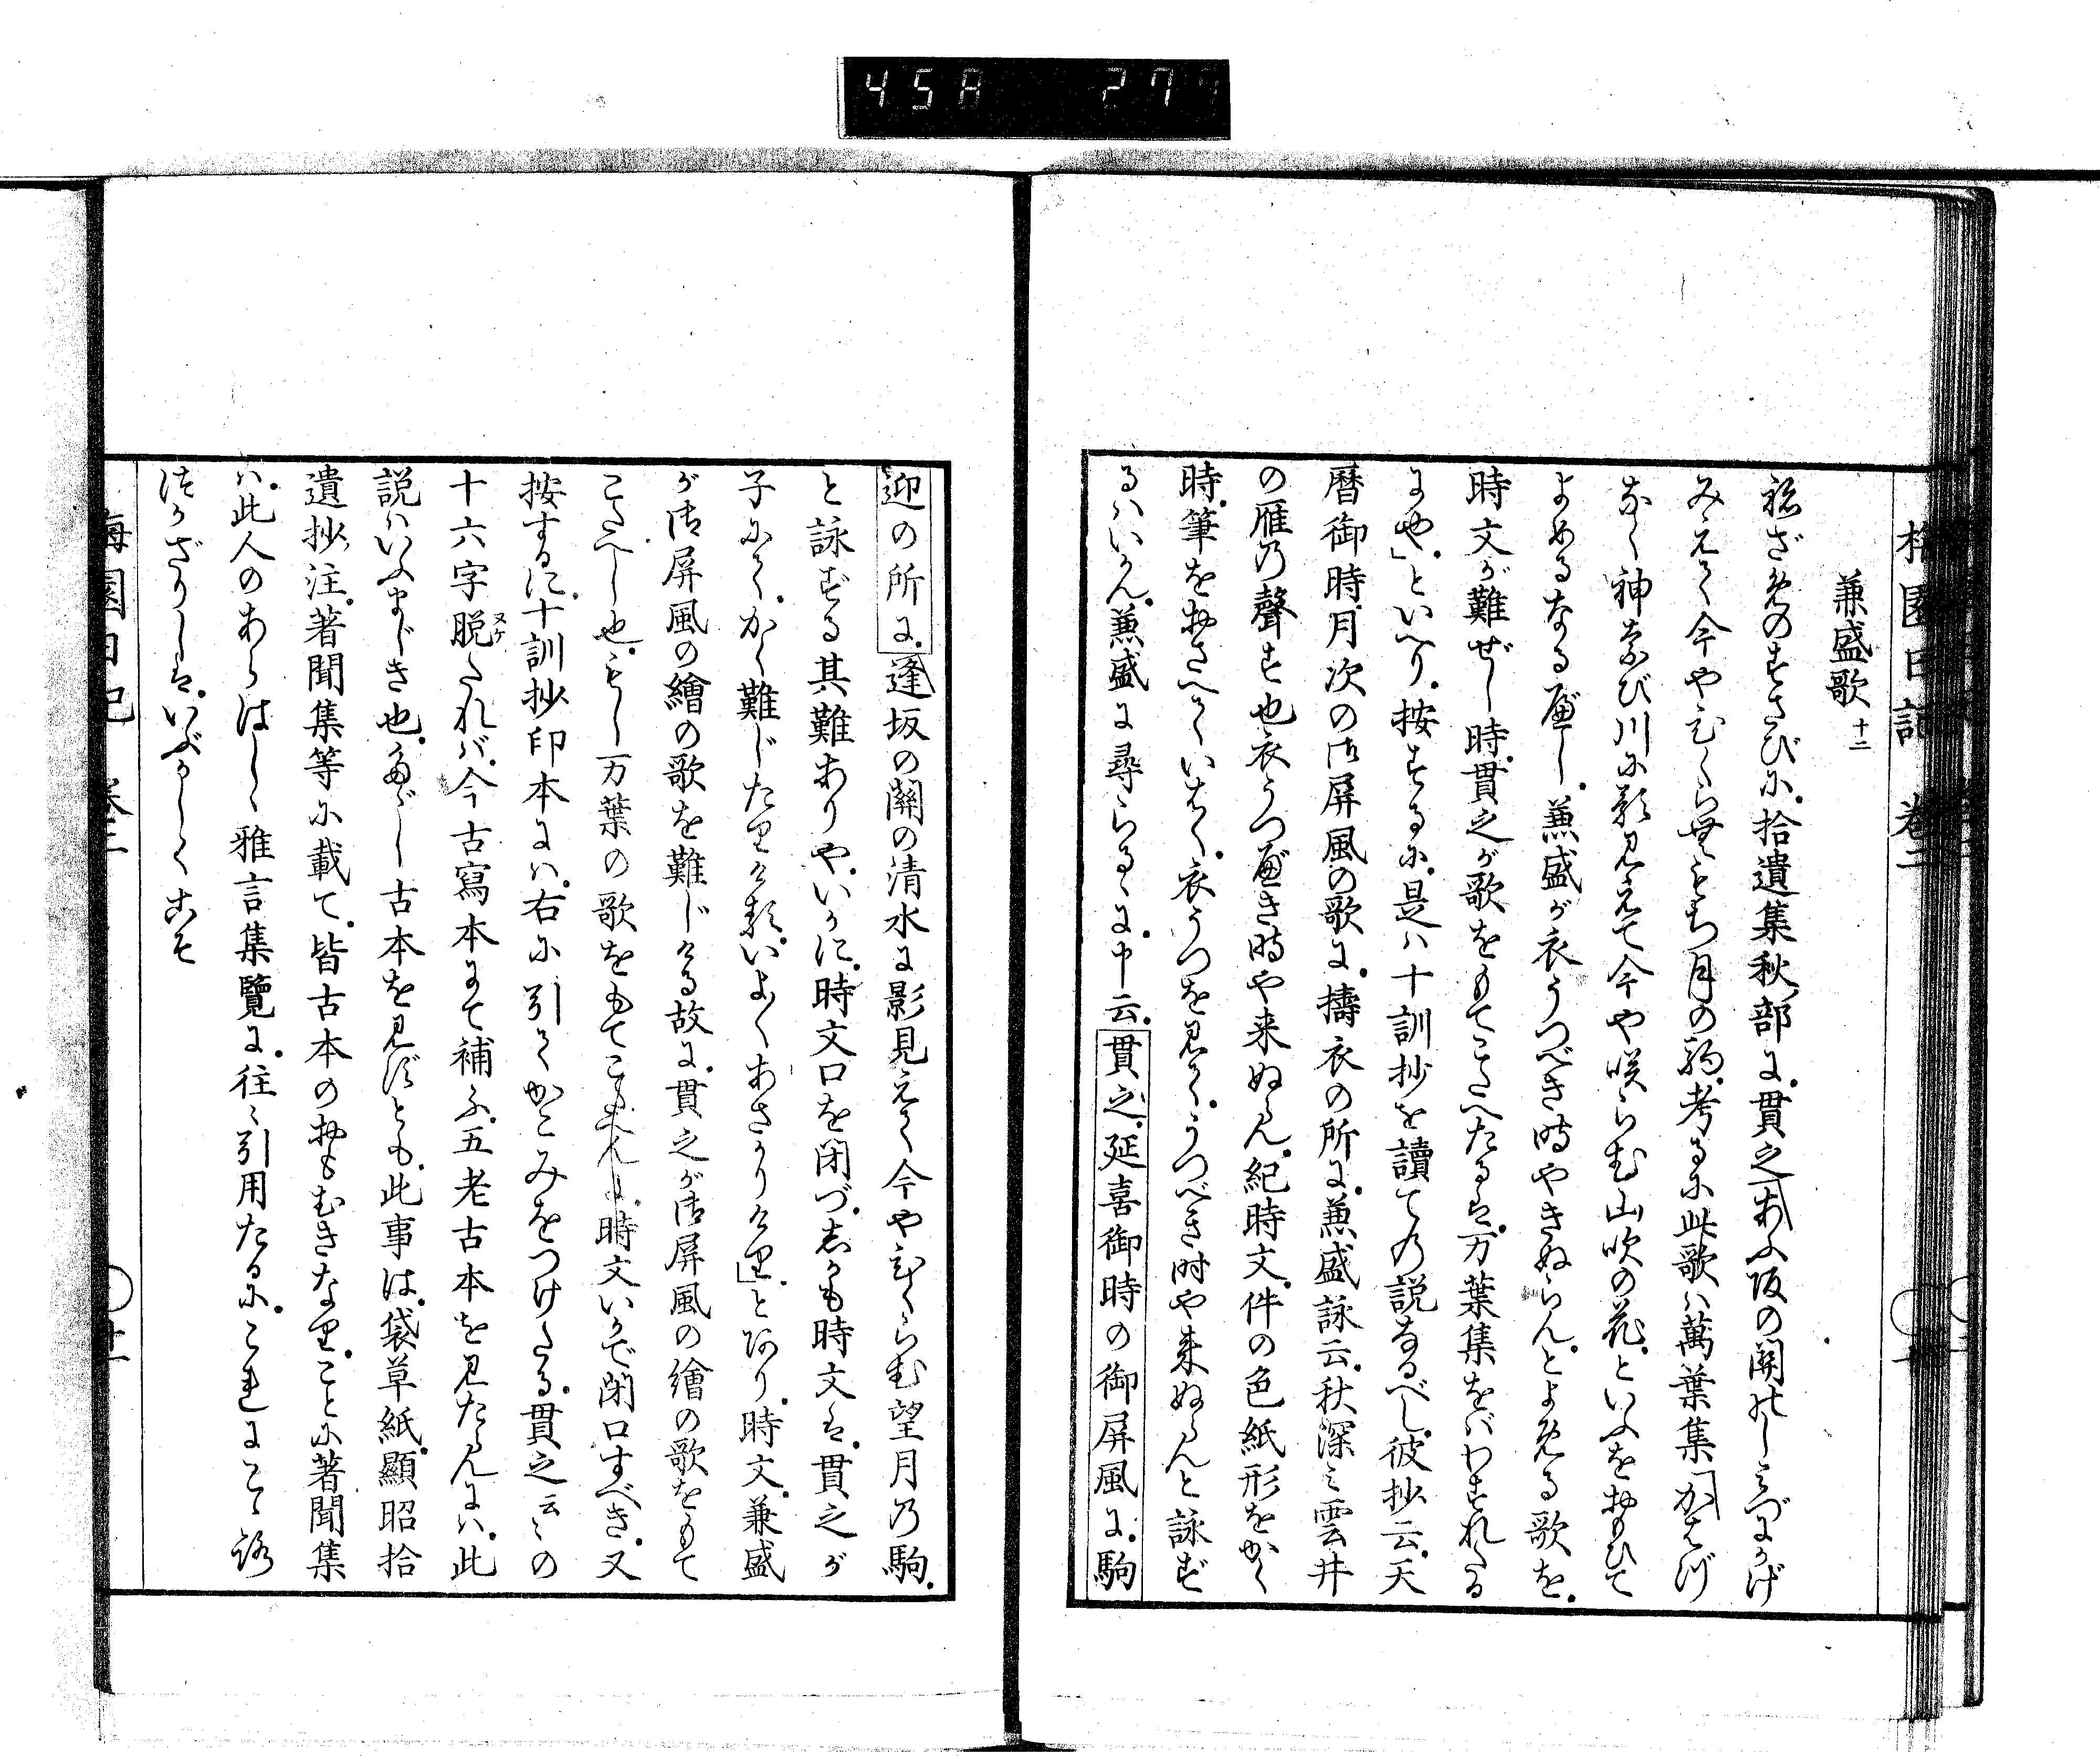 458 277
梅園日記 巻二
兼盛歌 十二
ねざめのすさびに。拾遺集秋部に。貫之「あふ坂の関のしみづにかげ
みえて今やひくらむもち月の駒。考るに此歌ハ萬葉集「かはづ
なく神なび川に影見えて今や咲らむ山吹の花。といふをおもひて
よめるなるべし。兼盛が衣うつべき時やきぬらん。とよめる歌を。
時文が難ぜし時。貫之が歌をもてこたへたるは。万葉集をばわすれたる
にや」といへり。按ずるに。是ハ十訓抄を讀ての説なるべし。彼抄云。天
暦御時。月次の御屏風の歌に。擣衣の所に。兼盛詠云。秋深き雲井
の雁の聲す也衣うつべき時や来ぬらん。紀時文。件の色紙形をかく
時。筆をおさへていはく。衣うつを見て。うつべき時や来ぬらんと詠ず
るハいかん。兼盛に尋らるゝに。申云。貫之。延喜御時の御屏風に。駒
迎の所に。逢坂の關の清水に影見えて今やひくらむ望月の駒。
と詠ずる其難ありや。いかに。時文口を閉づ。しかも時文は。貫之が
子にて。かく難じたりける。いよ〱あさかりけり」とあり。時文。兼盛
が御屏風の繪の歌を難じける故に。貫之が御屏風の繪の歌をもて
こたへし也。もし万葉の歌をもてこたへんに。時文いかで閉口すべき。又
按するに。十訓抄印本にハ。右に引てかこみをつけたる。貫之云々の
十六字脱たれバ。今古寫本にて補ふ。五老古本を見たらんにハ。此
説ハいふまじき也。たゞし古本を見ずとも。此事は。袋草紙。顯昭拾
遺抄注。著聞集等に載て。皆古本のおもむきなり。ことに著聞集
ハ。此人のあらはしゝ雅言集覽に。往々引用たるに。これにこゝろ
つかざりしは。いぶかしくこそ
梅園日記 巻二 十一